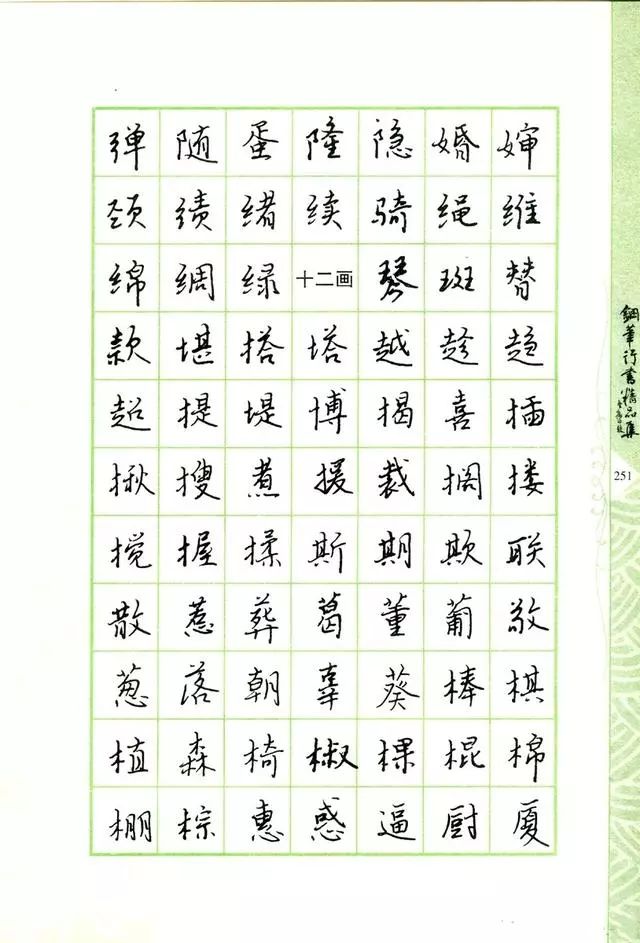 弹随蛋隆隐婚婶
颈绩绪续骑绳维
绵绸绿十二画琴斑替
款堪搭塔越趁趋
超提堤博揭喜插
揪搜煮援裁搁搂
搅握揉斯期欺联
散惹葬葛董葡敬
葱落朝辜葵棒棋
植森椅椒棵棍棉
棚棕惠惑逼厨厦
鋼筆行書精品集
251